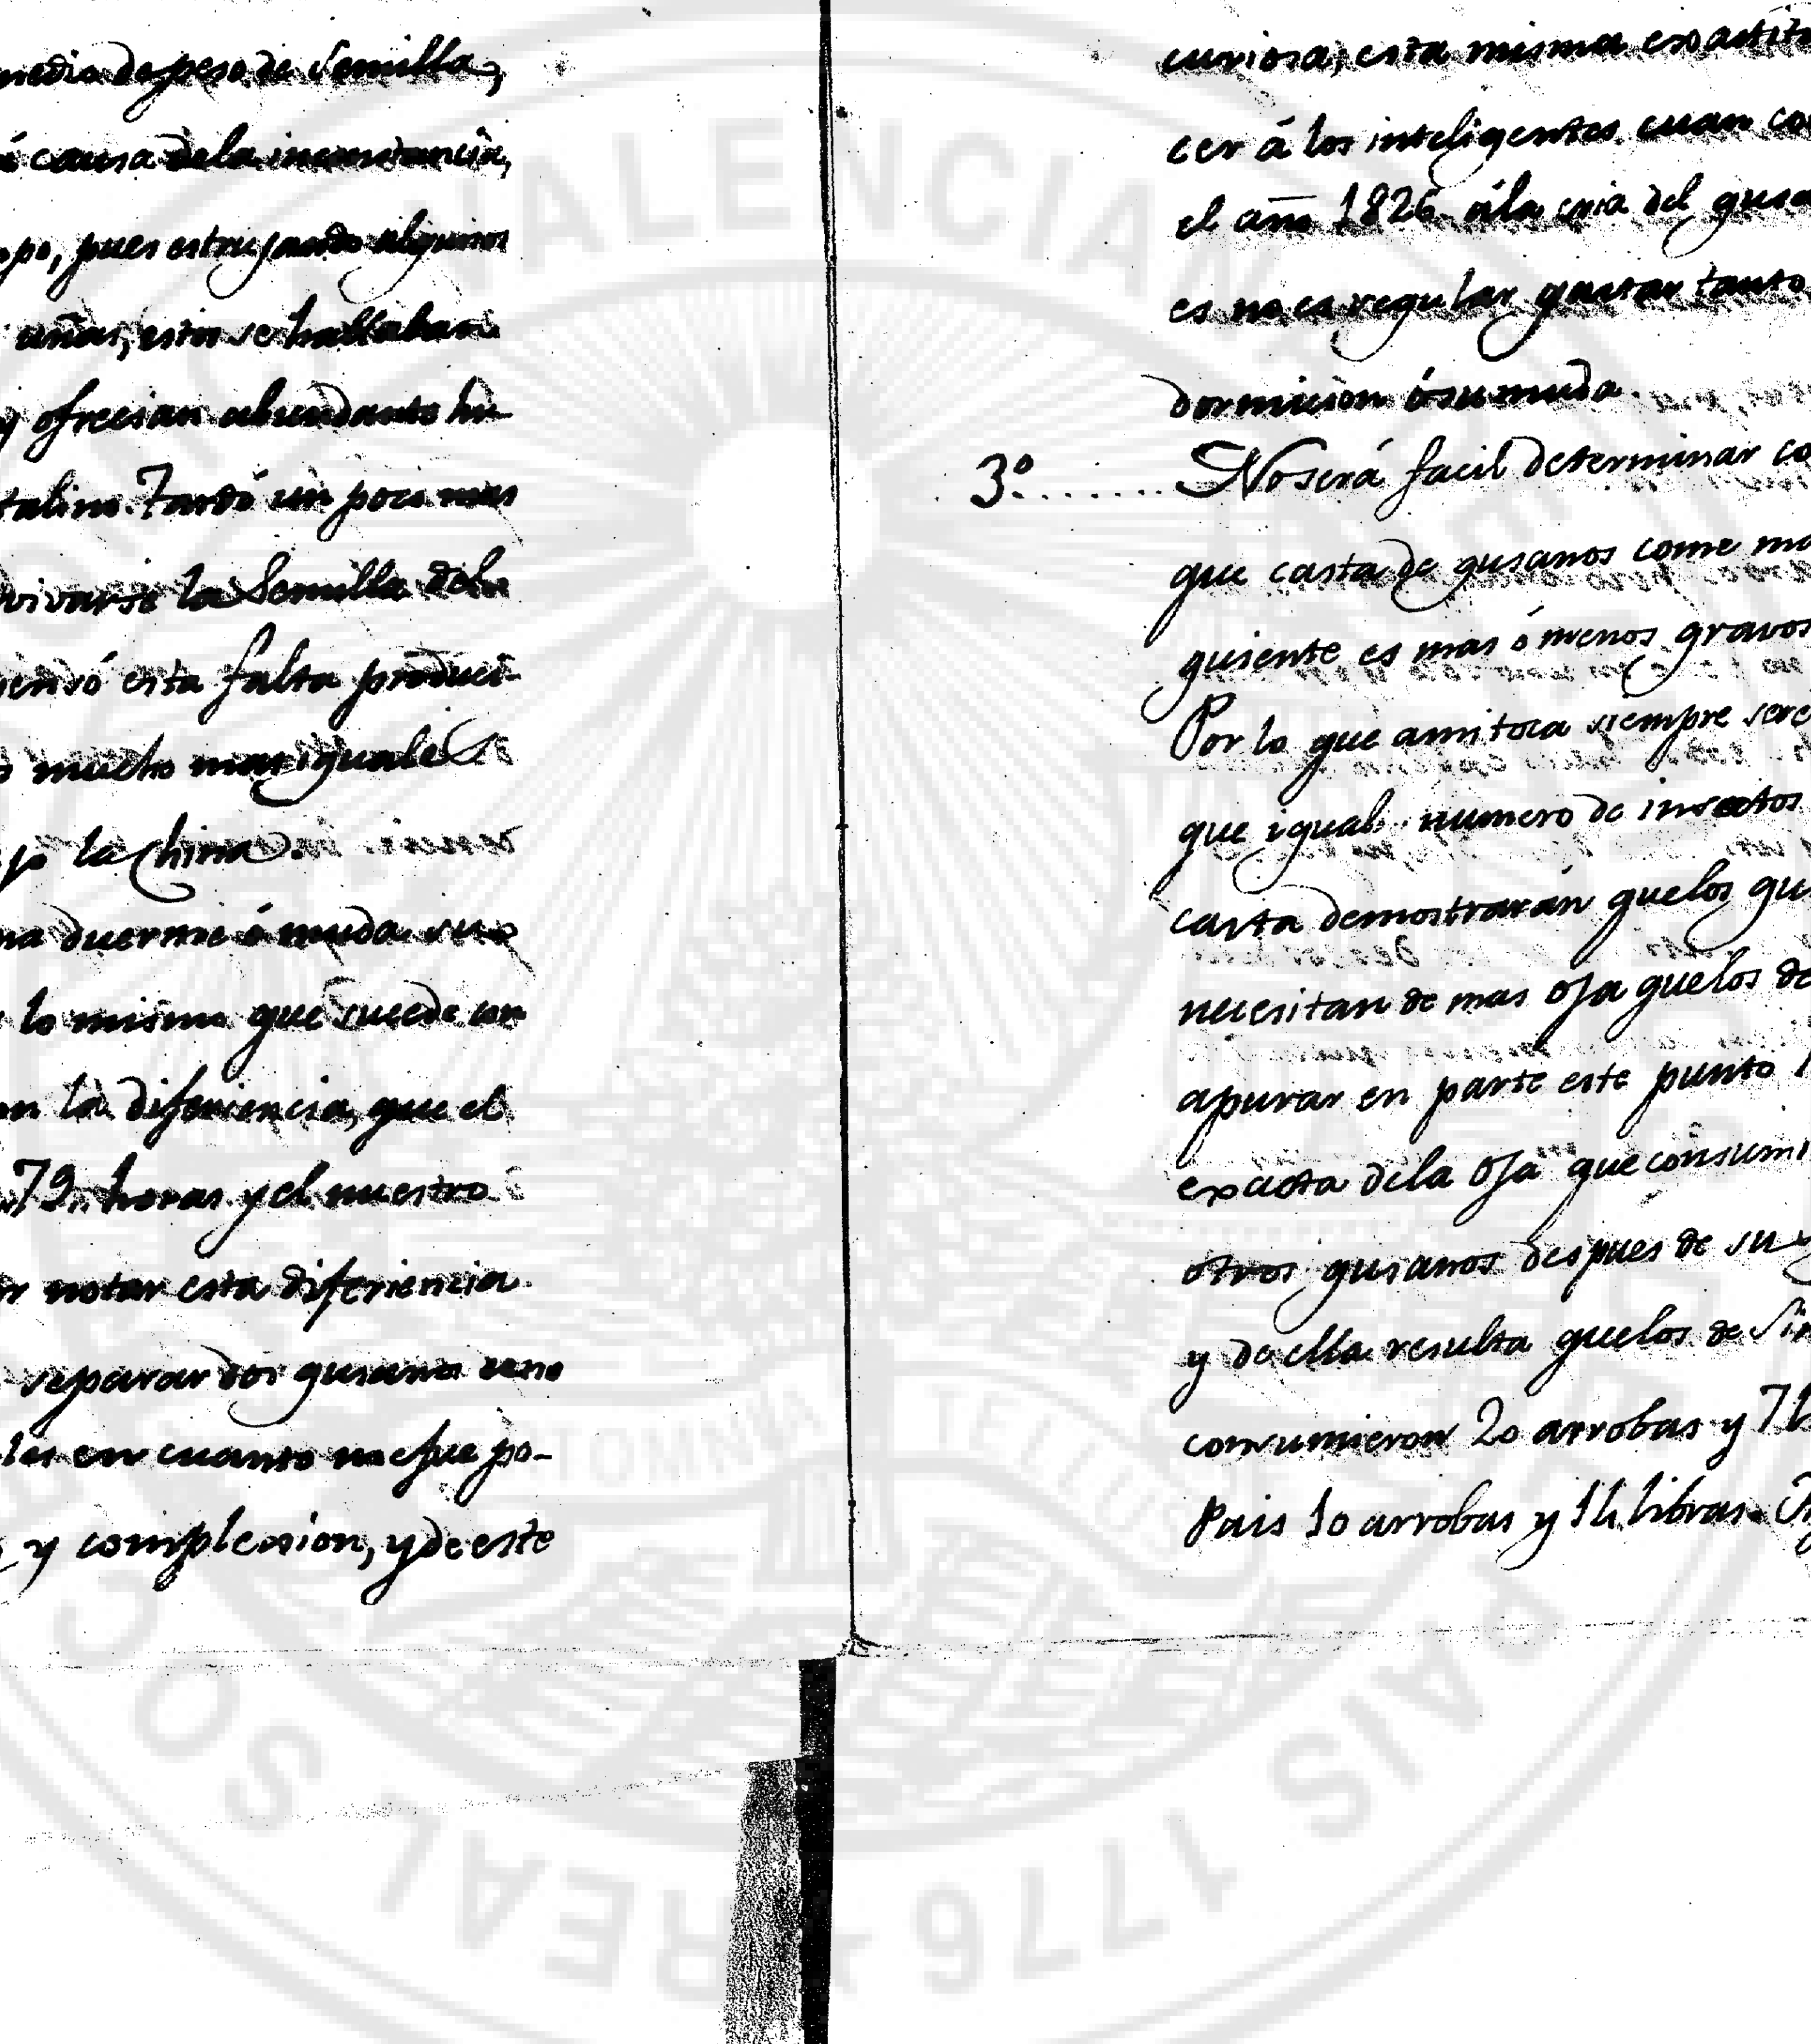 medio de peso de Semilla,
á causa dela inconstancia,
po, pues estrujando algunos
uñas, estos se hallaban
y ofrecian abundante hu-
talino. Tardó un poco mas
vivarse la Semilla dela
pensó esta falta produci-
mucho mas iguales
jo la China.
na duerme ó muda sus
lo mismo que sucede con
on la diferiencia, que el
79. horas y el nuestro
notar esta diferiencia
separar dos gusanos uno
les en cuanto me fue po-
y complexion, y de este
curiosa; esta misma exactitu
cer á los inteligentes cuan co
el año 1826 ála cria del gusa
es no es regular gastar tanto
dormicion ó su muda.
3º ....... No será facil determinar co
que casta de gusanos come ma
guiente es mas ó menos gravos
Por lo que ami toca siempre sere
que igual numero de insectos
casta demostrarán quelos gu
necesitan de mas oja quelos de
apurar en parte este punto
exacta dela oja que consumi
otros gusanos despues de su
y de ella resulta quelos de Sin
consumieron 20 arrobas y 7 l
Pais 10 arrobas y 14 libras.
REAL SO VALENCIA PAIS 1776